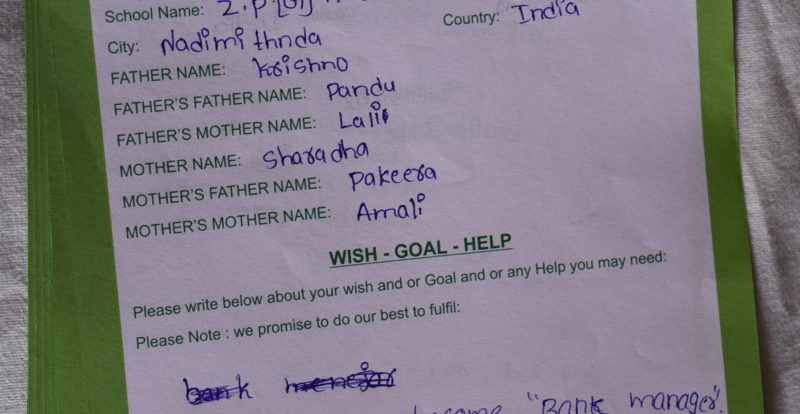 School Name: Z.P
Country: India
City: Nadimi thnda
FATHER NAME: Krishno
FATHER'S FATHER NAME: Pandu
FATHER'S MOTHER NAME: Lalii
MOTHER NAME: Sharadha
MOTHER'S FATHER NAME: Pakeera
MOTHER'S MOTHER NAME: Amali
WISH - GOAL - HELP
Please write below about your wish and or Goal and or any Help you may need:
Please Note : we promise to do our best to fulfil:
bank menejar
"Bank manager"